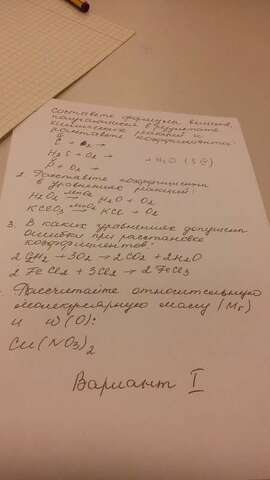 Составьте формулы веществ,
получающихся в результате
химических реакций и
расставьте коэффициенты:
C + O₂ →
H₂S + O₂ → + H₂O
P + O₂ →
2. Расставьте коэффициенты
в уравнениях реакций:
H₂O₂ → H₂O + O₂
KClO₃ → KCl + O₂
3. В каких уравнениях допущены
ошибки при расстановке
коэффициентов:
+ 3O₂ → 2CO₂ + 2H₂O
2FeCl₂ + 3Cl₂ → 2FeCl₃
Рассчитайте относительную
молекулярную массу (Mr)
и w(O):
Cu(NO₃)₂
Вариант I